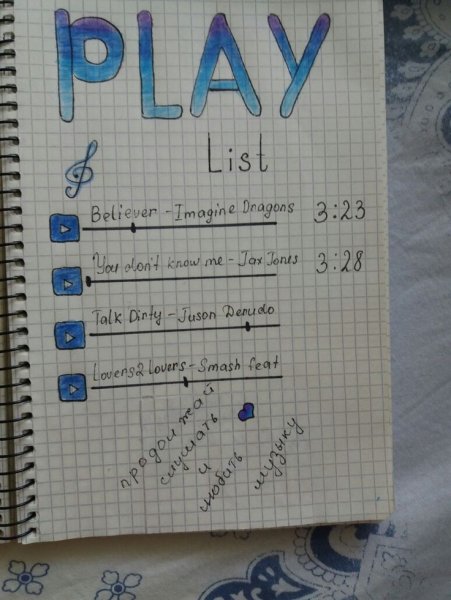 PLAY
List
Believer - Imagine Dragons 3:23
You don't know me - Jax Jones 3:28
Talk Dirty - Juson Derudo
Lovers2lovers - Smash feat
продолжай
слушать
и
любить
музыку